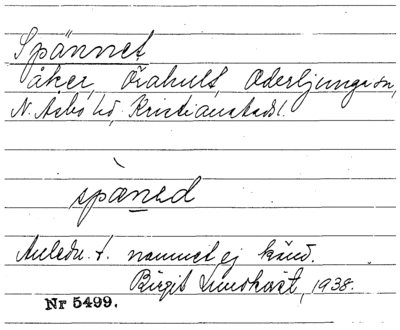 Spännet,
åker, Örahult, Oderljunga sn,
N. Åsbo hd, Kristianstads l.
spæned
Anledn. t. namnet ej känd.
Birgit Lundkvist, 1938.
Nr 5499.